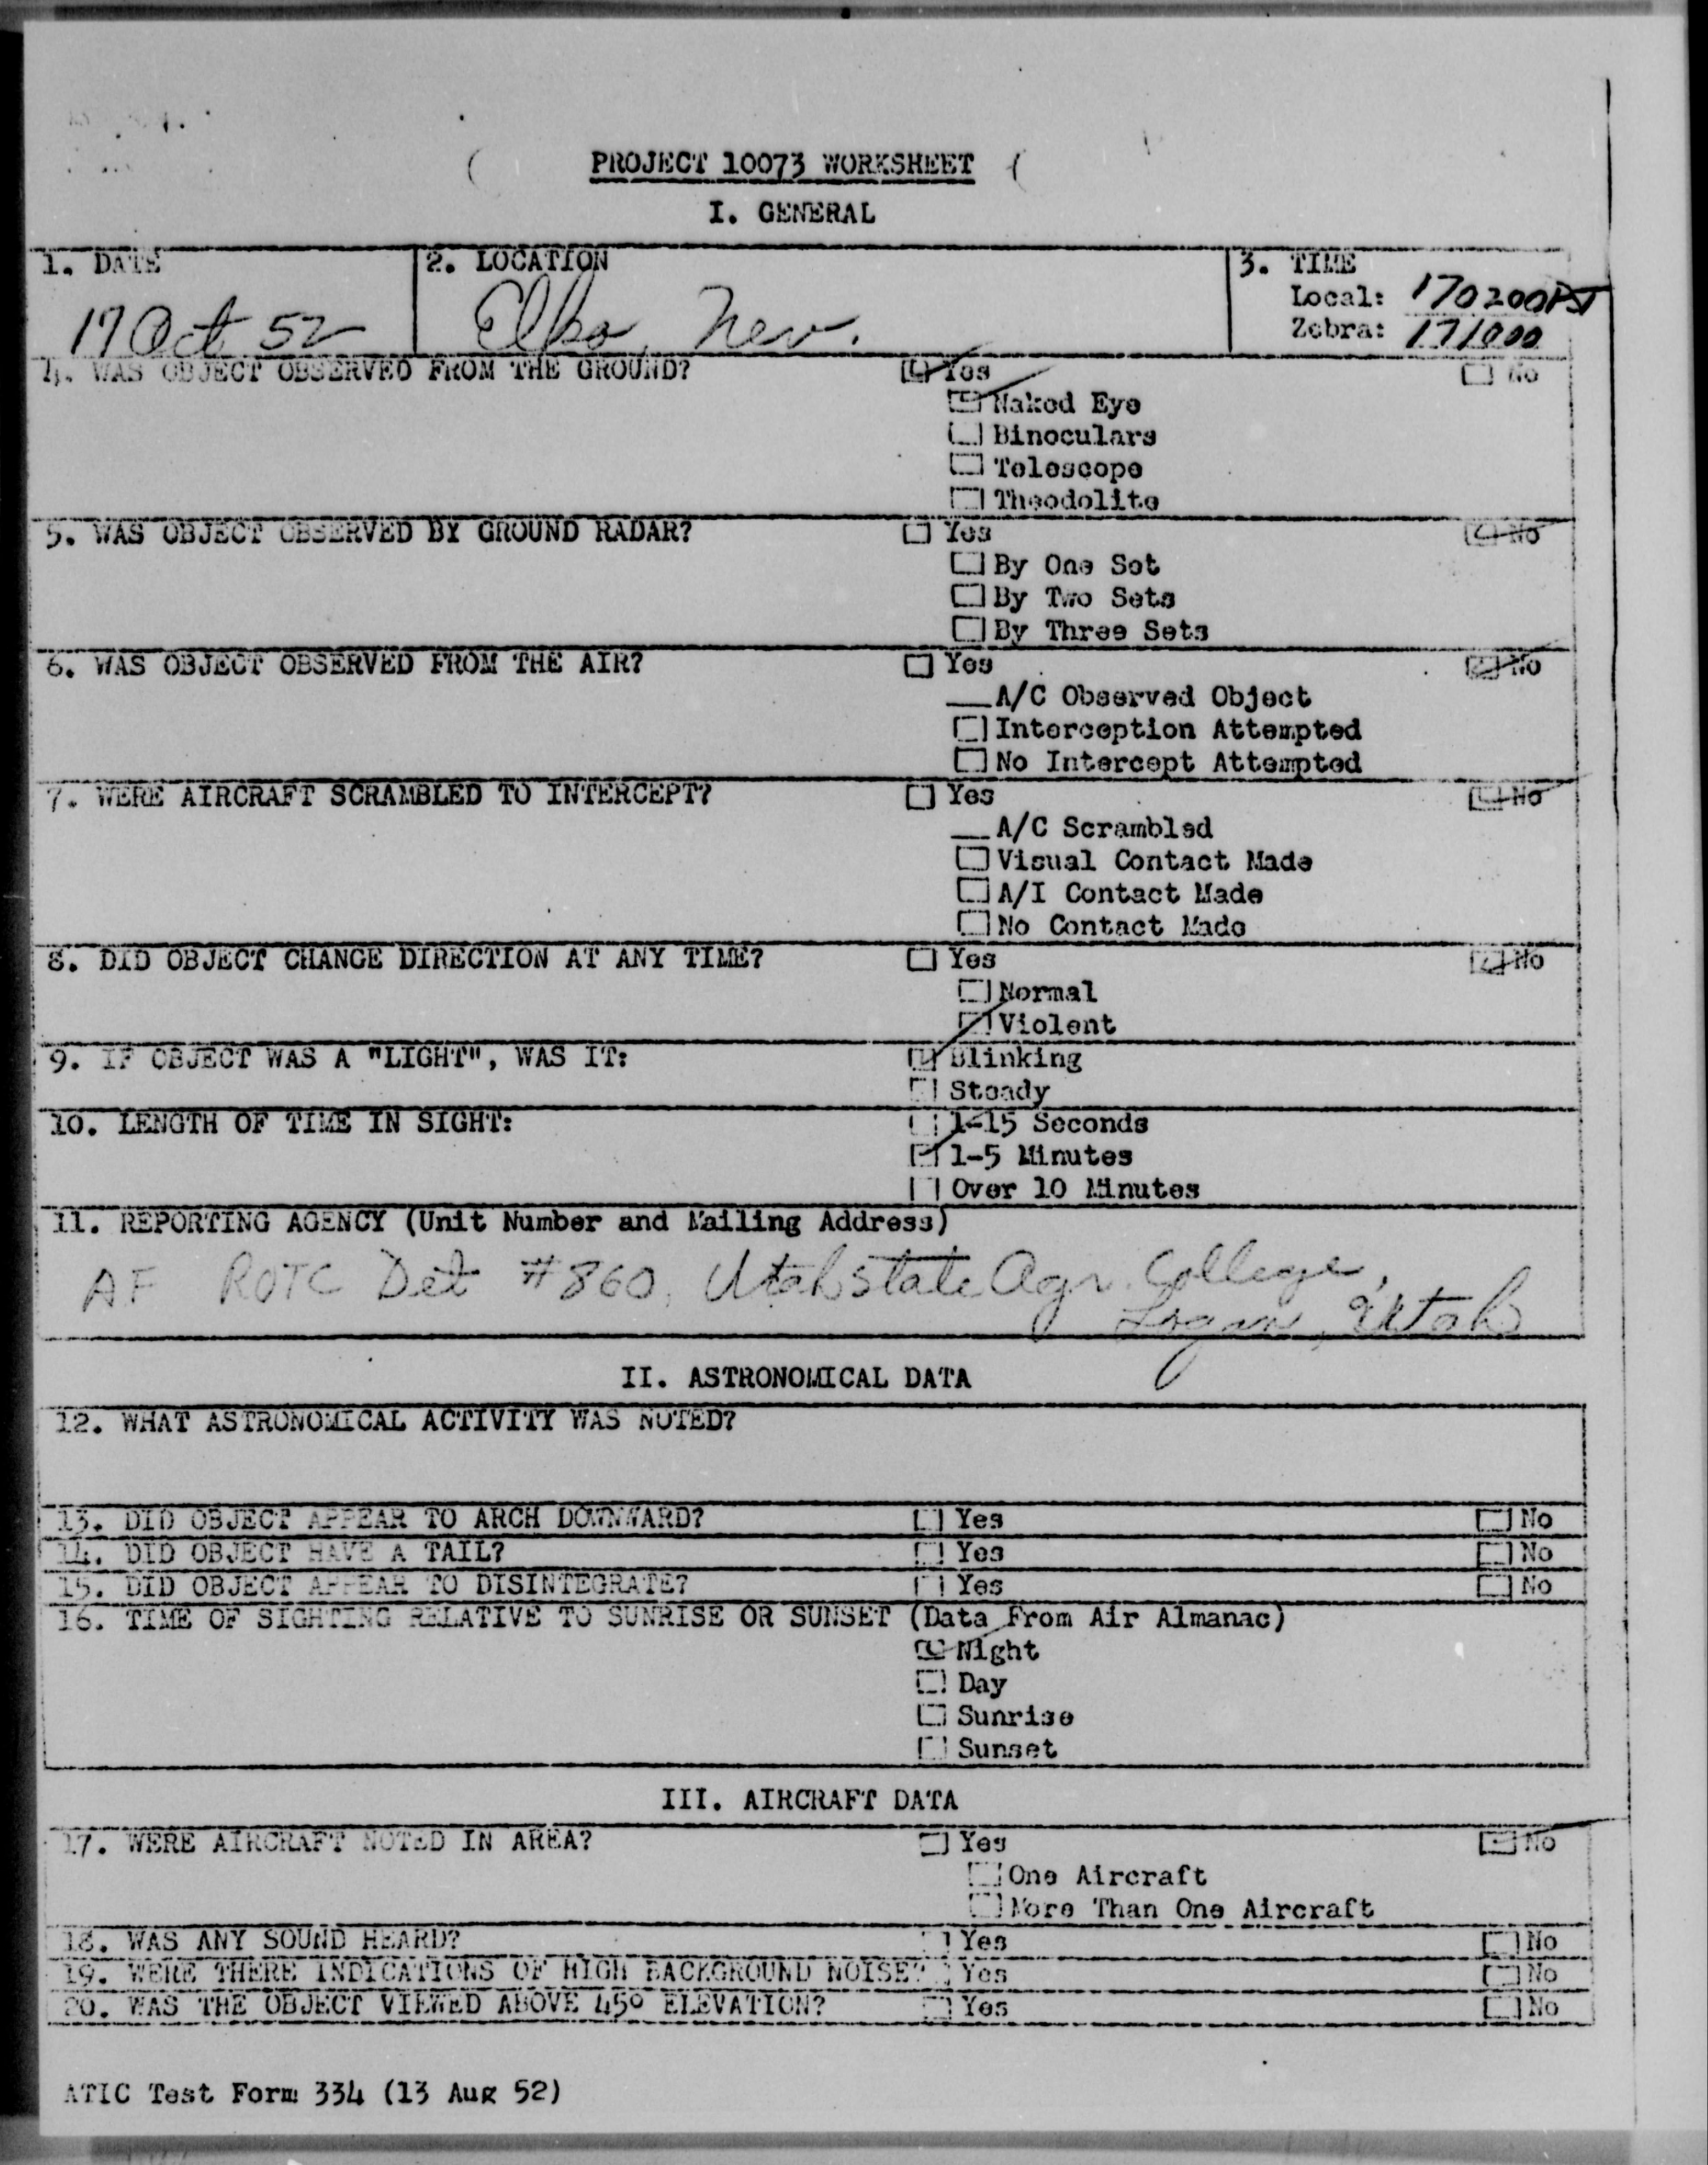 PROJECT 10073 WORKSHEET
I. GENERAL
1. DATE
17 Oct 52
2. LOCATION
Elko, Nev.
3. TIME
Local: 170200PST
Zebra: 171000
4. WAS OBJECT OBSERVED FROM THE GROUND? Yes No
Naked Eye
Binoculars
Telescope
Theodolite
5. WAS OBJECT OBSERVED BY GROUND RADAR? Yes No
By One Set
By Two Sets
By Three Sets
6. WAS OBJECT OBSERVED FROM THE AIR? Yes No
__A/C Observed Object
Interception Attempted
No Intercept Attempted
7. WERE AIRCRAFT SCRAMBLED TO INTERCEPT? Yes No
__A/C Scrambled
Visual Contact Made
A/I Contact Made
No Contact Made
8. DID OBJECT CHANGE DIRECTION AT ANY TIME? Yes No
Normal
Violent
9. IF OBJECT WAS A "LIGHT", WAS IT: Blinking
Steady
10. LENGTH OF TIME IN SIGHT: 1-15 Seconds
1-5 Minutes
Over 10 Minutes
11. REPORTING AGENCY (Unit Number and Mailing Address)
AF ROTC Det #860, Utah State Agr. College,
Logan, Utah
II. ASTRONOMICAL DATA
12. WHAT ASTRONOMICAL ACTIVITY WAS NOTED?
13. DID OBJECT APPEAR TO ARCH DOWNWARD? Yes No
14. DID OBJECT HAVE A TAIL? Yes No
15. DID OBJECT APPEAR TO DISINTEGRATE? Yes No
16. TIME OF SIGHTING RELATIVE TO SUNRISE OR SUNSET (Data From Air Almanac)
Night
Day
Sunrise
Sunset
III. AIRCRAFT DATA
17. WERE AIRCRAFT NOTED IN AREA? Yes No
One Aircraft
More Than One Aircraft
18. WAS ANY SOUND HEARD? Yes No
19. WERE THERE INDICATIONS OF HIGH BACKGROUND NOISE? Yes No
20. WAS THE OBJECT VIEWED ABOVE 45° ELEVATION? Yes No
ATIC Test Form 334 (13 Aug 52)